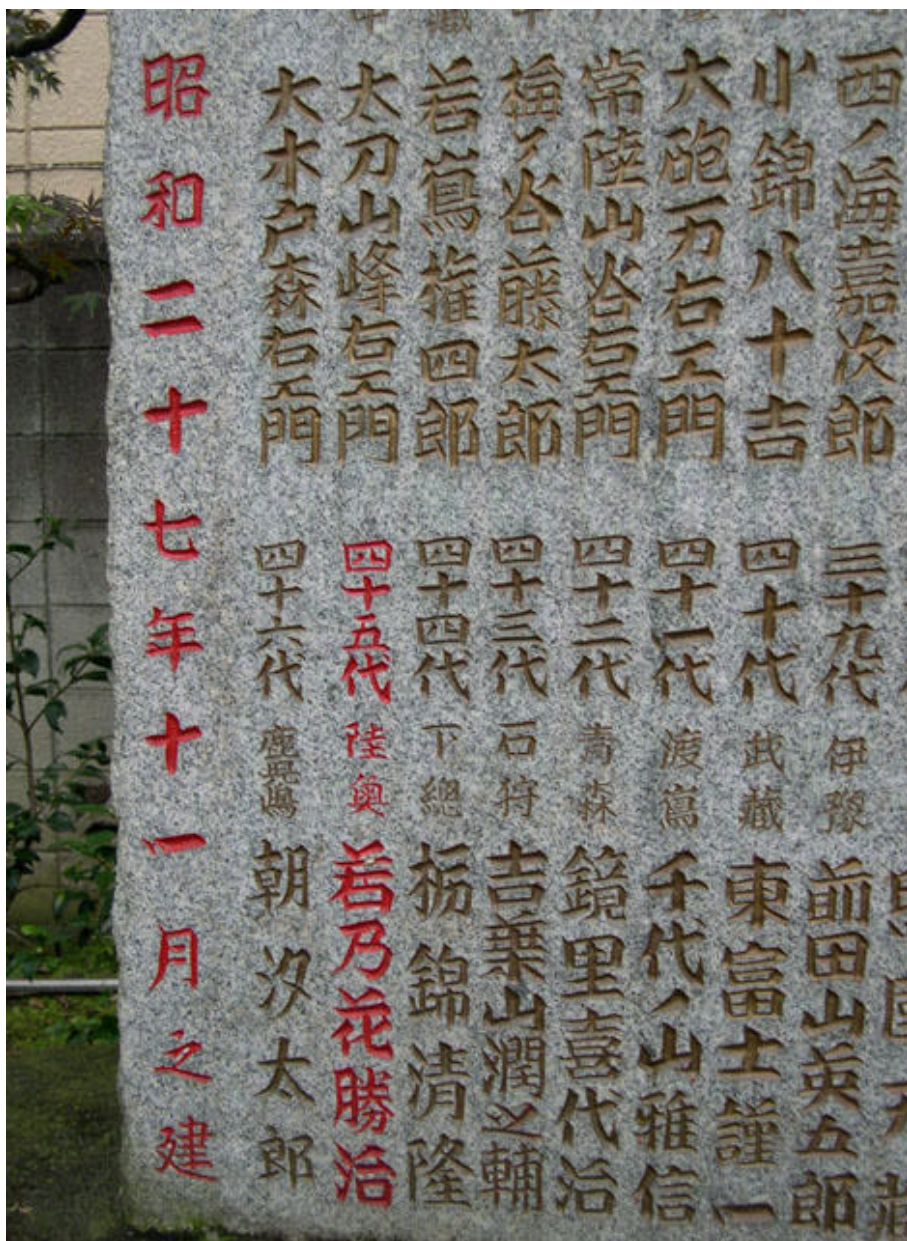 西ノ海嘉次郎
小錦八十吉
大砲万右エ門
常陸山谷右エ門
梅ヶ谷藤太郎
若嶌権四郎
太刀山峰右エ門
大木户森右エ門
三十九代 伊豫 前田山英五郎
四十代 武藏 東富士謹一
四十一代 渡嶌 千代ノ山雅信
四十二代 青森 鏡里喜代治
四十三代 石狩 吉葉山潤之輔
四十四代 下總 栃錦清隆
四十五代 陸奥 若乃花勝治
四十六代 鹿児嶋 朝汐太郎
昭和二十七年十一月之建